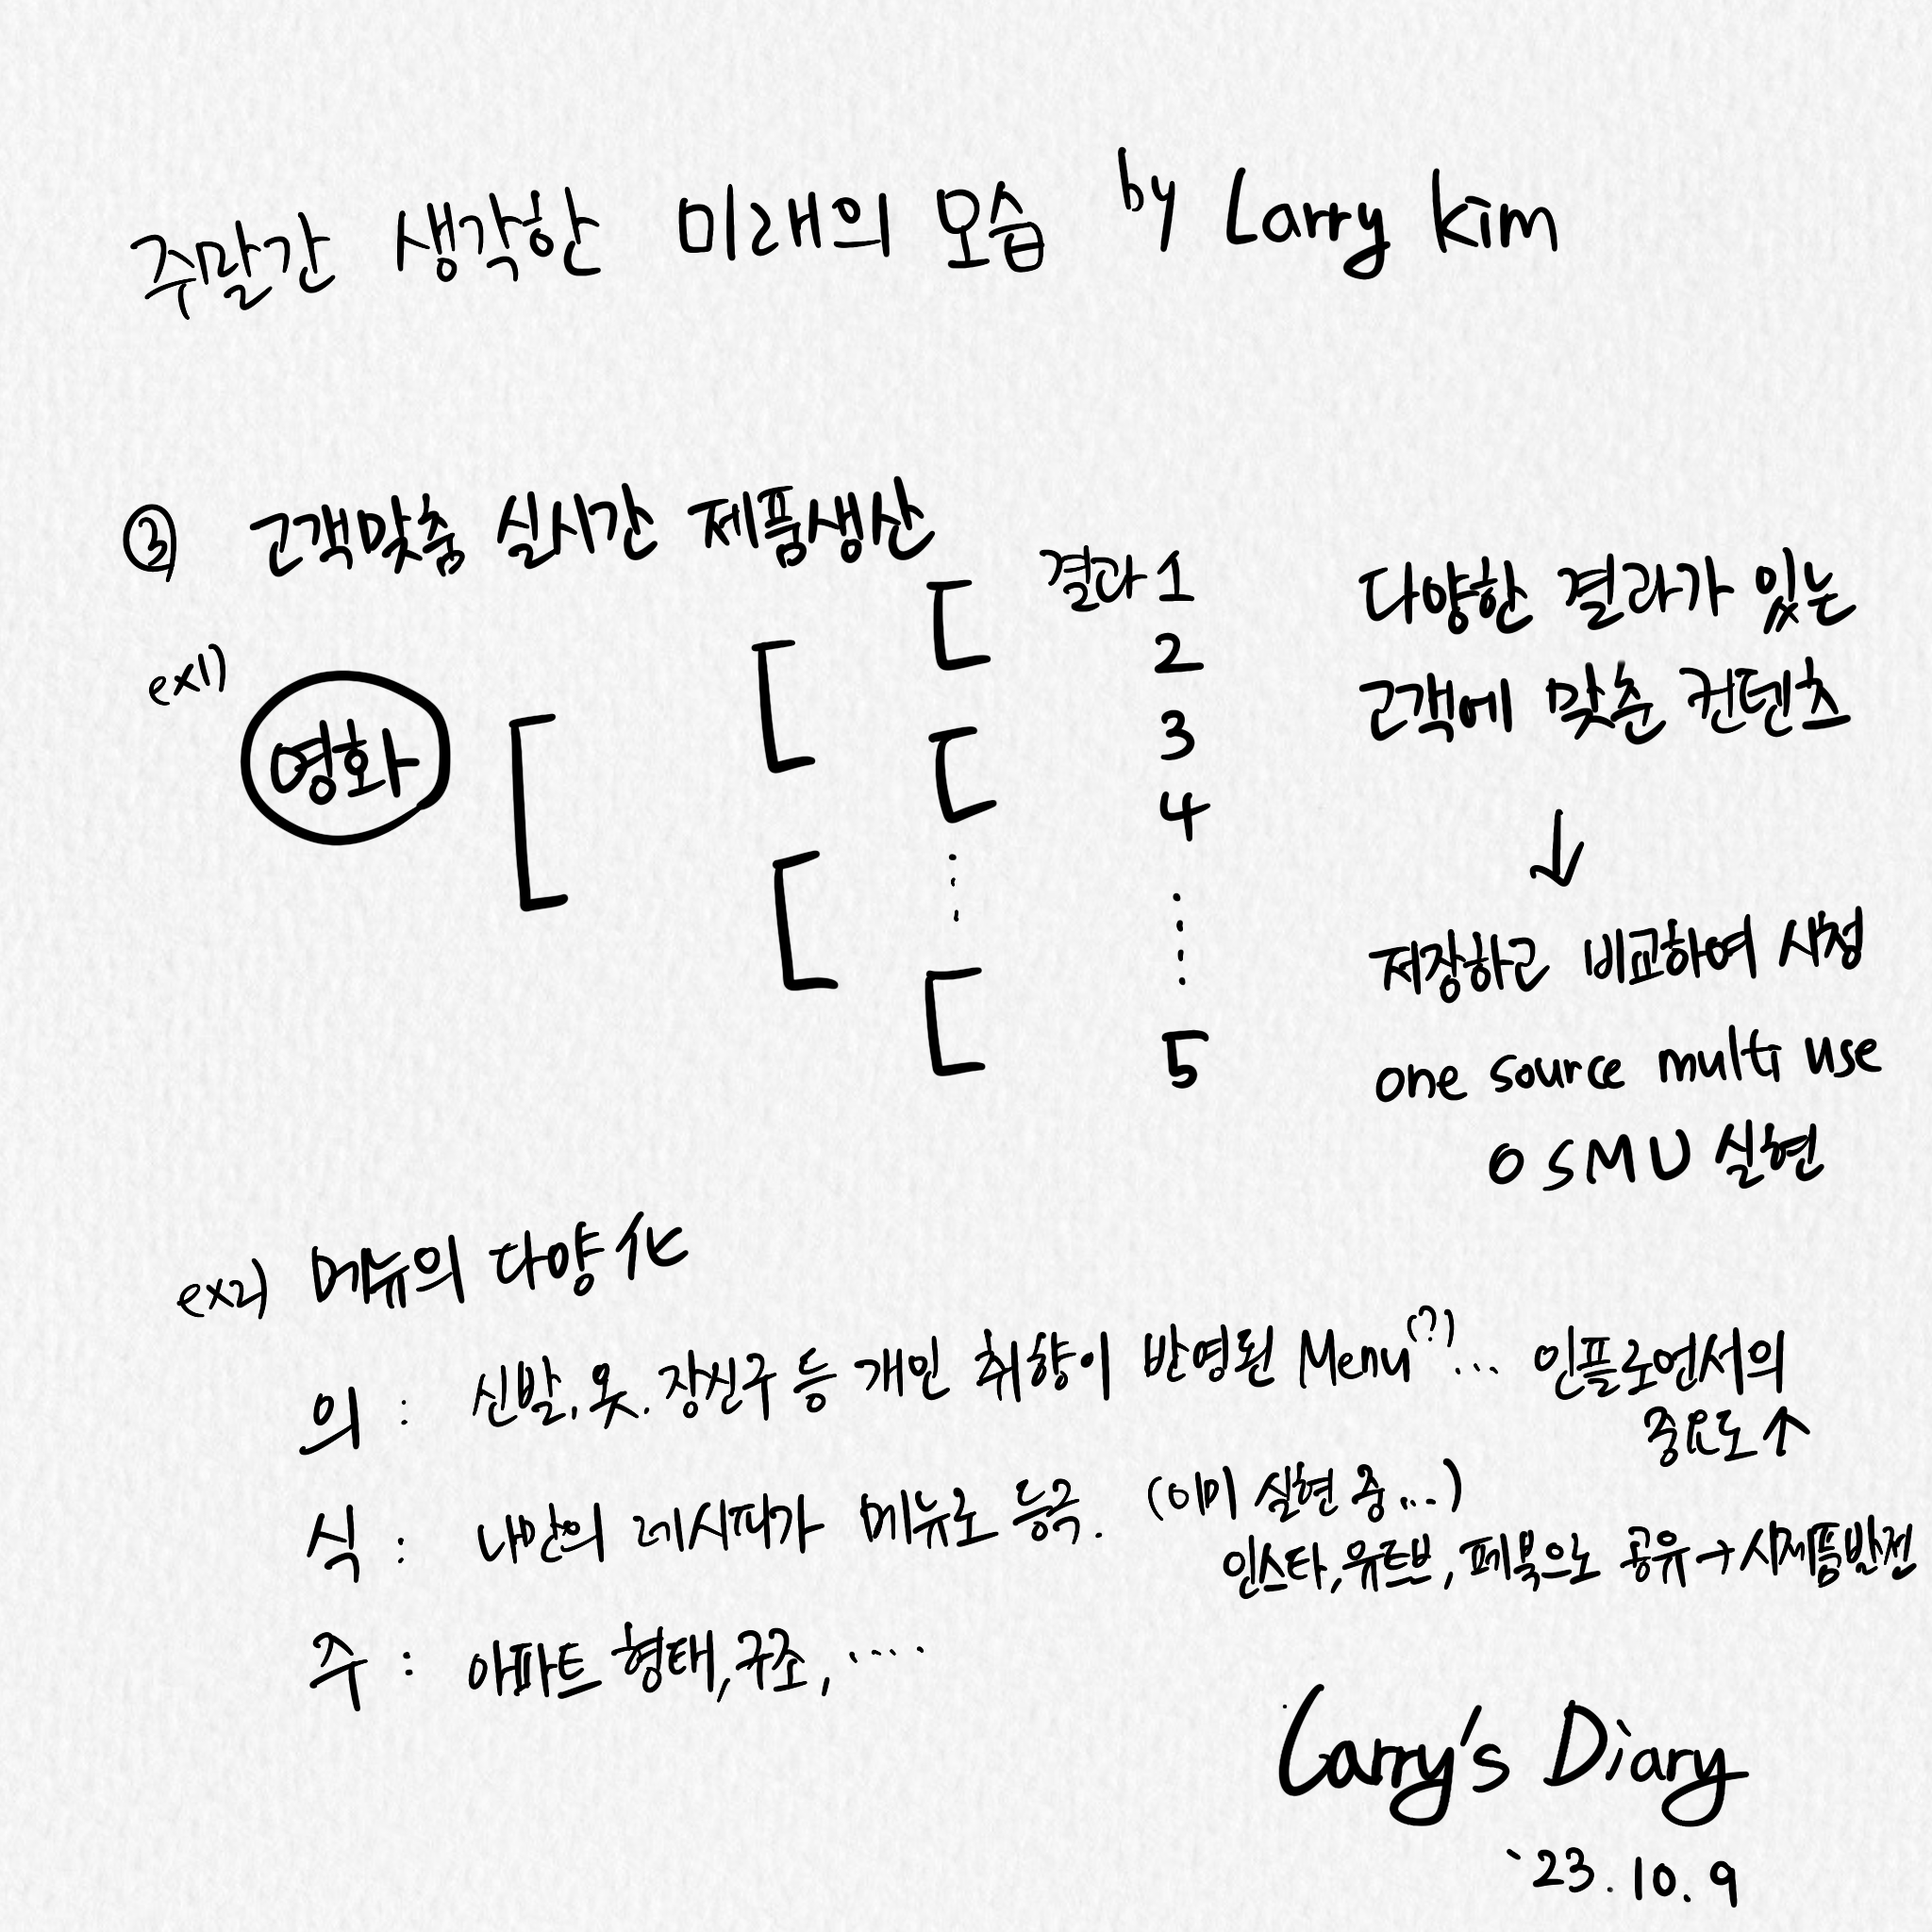 주말간 생각한 미래의 모습 by Larry kim
③ 고객맞춤 실시간 제품생산
ex1) 영화
결과 1
2
3
4
5
다양한 결과가 있는
고객에 맞춘 컨텐츠
↓
저장하고 비교하여 시청
one source multi use
OSMU 실현
ex2) 메뉴의 다양化
의 : 신발, 옷, 장신구 등 개인 취향이 반영된 Menu(?)... 인플루언서의
중요도 ↑
식 : 나만의 레시피가 메뉴로 등극. (이미 실현 중...)
인스타, 유튜브, 페북으로 공유 → 시제품발전
주 : 아파트 형태, 구조, ....
Larry's Diary
`23. 10. 9